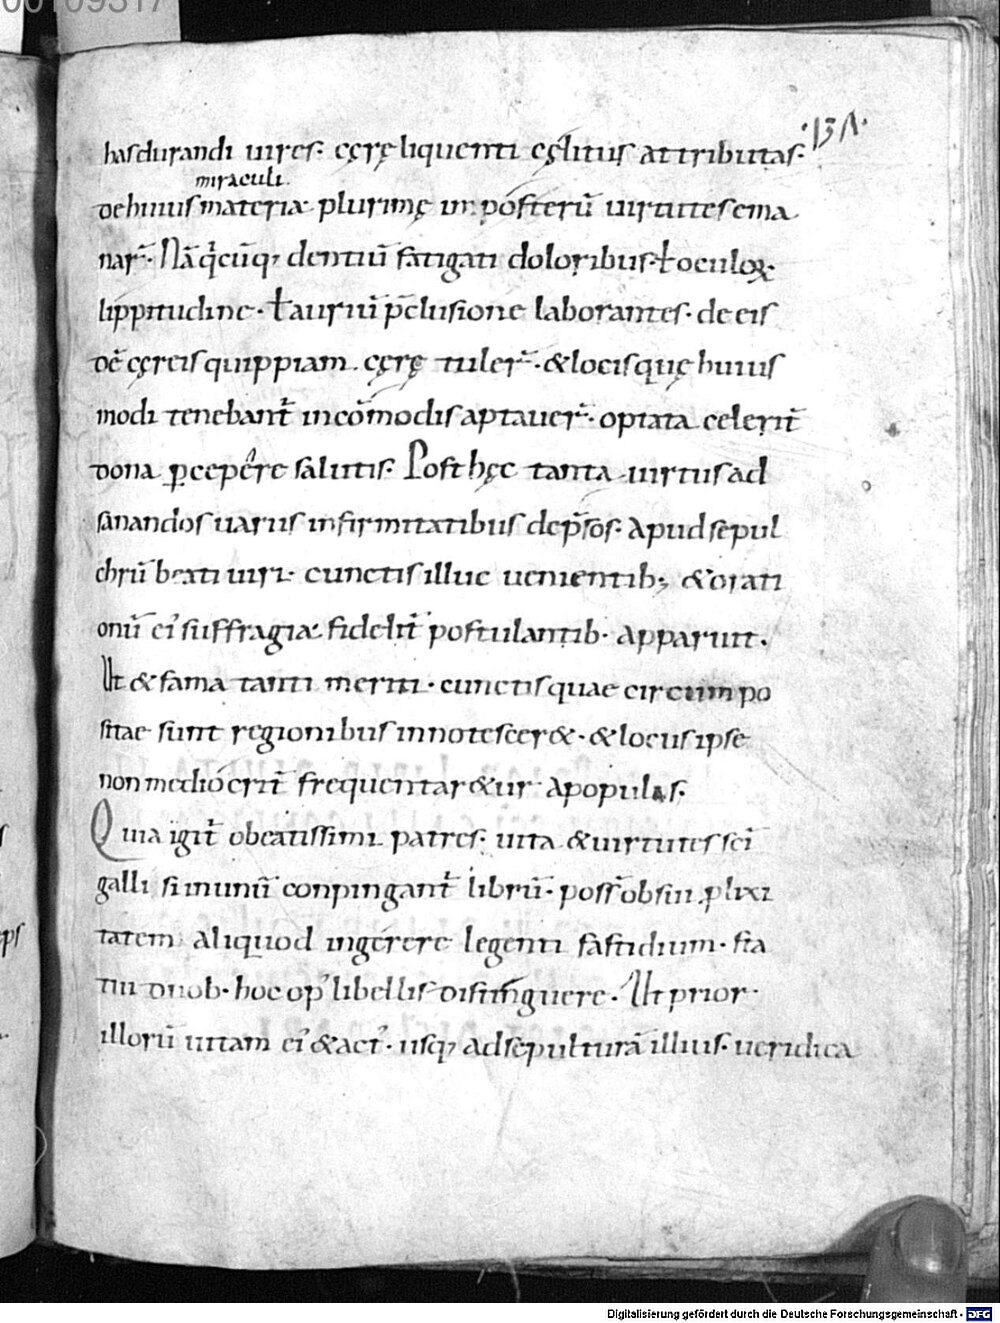 00109317
·131·
has durandi uires. cęrę liquenti cęlitus attributas.
miraculi.
De huius materia plurimę in posterũ uirtutes ema
nar̃. Nã q̇cũq; dentiũ fatigati doloribus. ł oculoꝝ
lippitudine. ł auriũ p̃clusione laborantes. de eis
dẽ cęreis quippiam cęrę tuler̃. & locis quę huius
modi tenebant̃ incõmodis aptauer̃. optata celerit̃
dona ꝑcepêre salutis. Post hęc tanta uirtus ad
sanandos uariis infirmitatibus dep̃sos. apud sepul
chrũ beati uiri. cunctis illuc uenientib; & orati
onũ ei᾽ suffragia fidelit̃ postulantib· apparuit.
Ut & fama tanti meriti. cunctis quae circum po
sitae sunt regionibus innotescer&. & locus ipse
non mediocrit̃ frequentar&ur a populis.
Quia igit̃ o beatissimi patres. uita & uirtutes sc̃i
galli si in unũ conpingant̃ librũ. poss̃ ob sui ꝓlixi
tatem aliquod ingerere legenti fastidium. sta
tui duob· hoc op᾽ libellis distinguere. Ut prior
illorũ uitam ei᾽ & act᾽. usq; ad sepulturã illius. ueridica
Digitalisierung gefördert durch die Deutsche Forschungsgemeinschaft - DFG